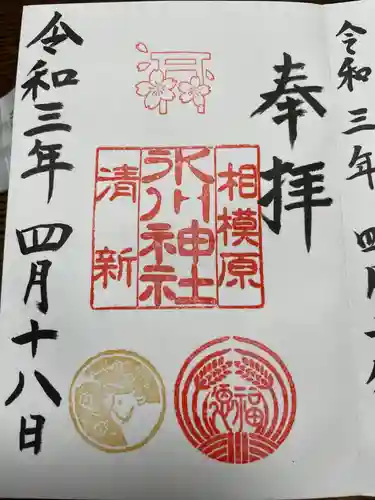 奉拝
相模原
氷川神社
清新
福
徳
令和三年四月十八日
令和三年四月十